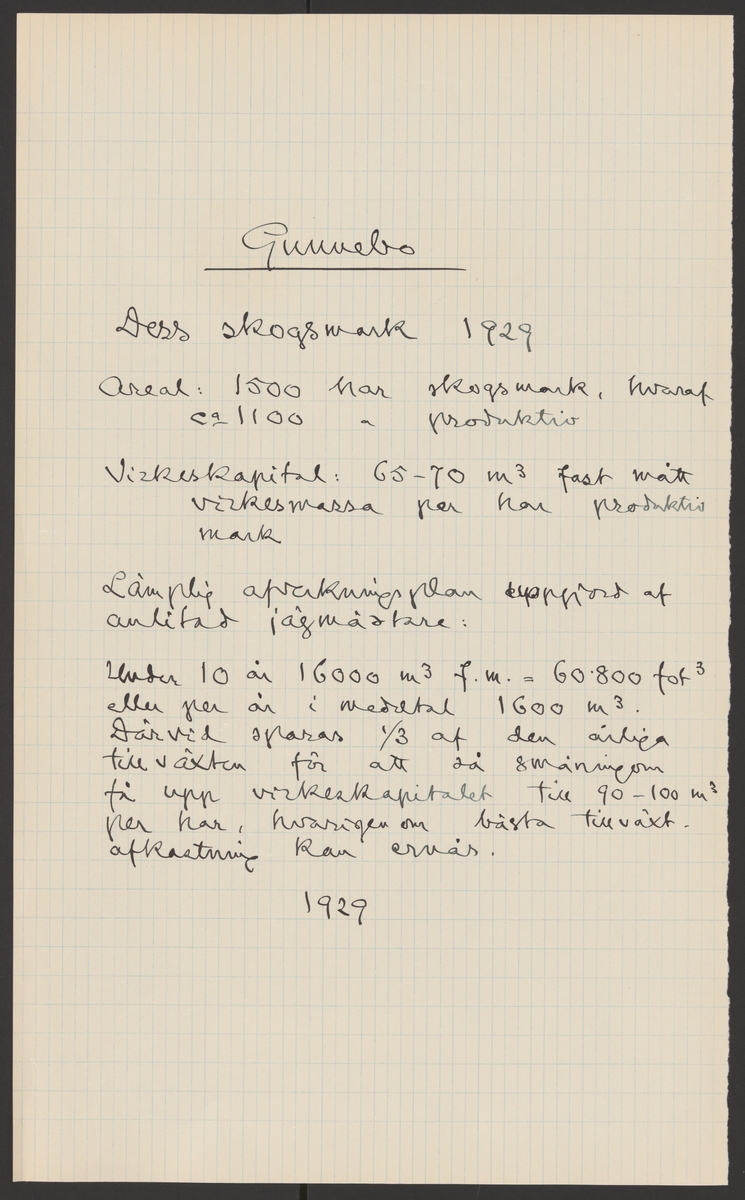 Gunnebo
Dess skogsmark 1929
Areal: 1500 har skogsmark, hvaraf
ca 1100 " produktiv
Virkeskapital: 65-70 m³ fast mått
virkesmassa per har produktiv
mark
Lämplig afverkningsplan uppgjord af
anlitad jägmästare:
Under 10 år 16000 m³ f.m. = 60.800 fot³
eller per år i medeltal 1600 m³.
Därvid sparas 1/3 af den årliga
tillväxten för att så småningom
få upp virkeskapitalet till 90-100 m³
per har, hvarigenom bästa tillväxt-
afkastning kan ernås.
1929